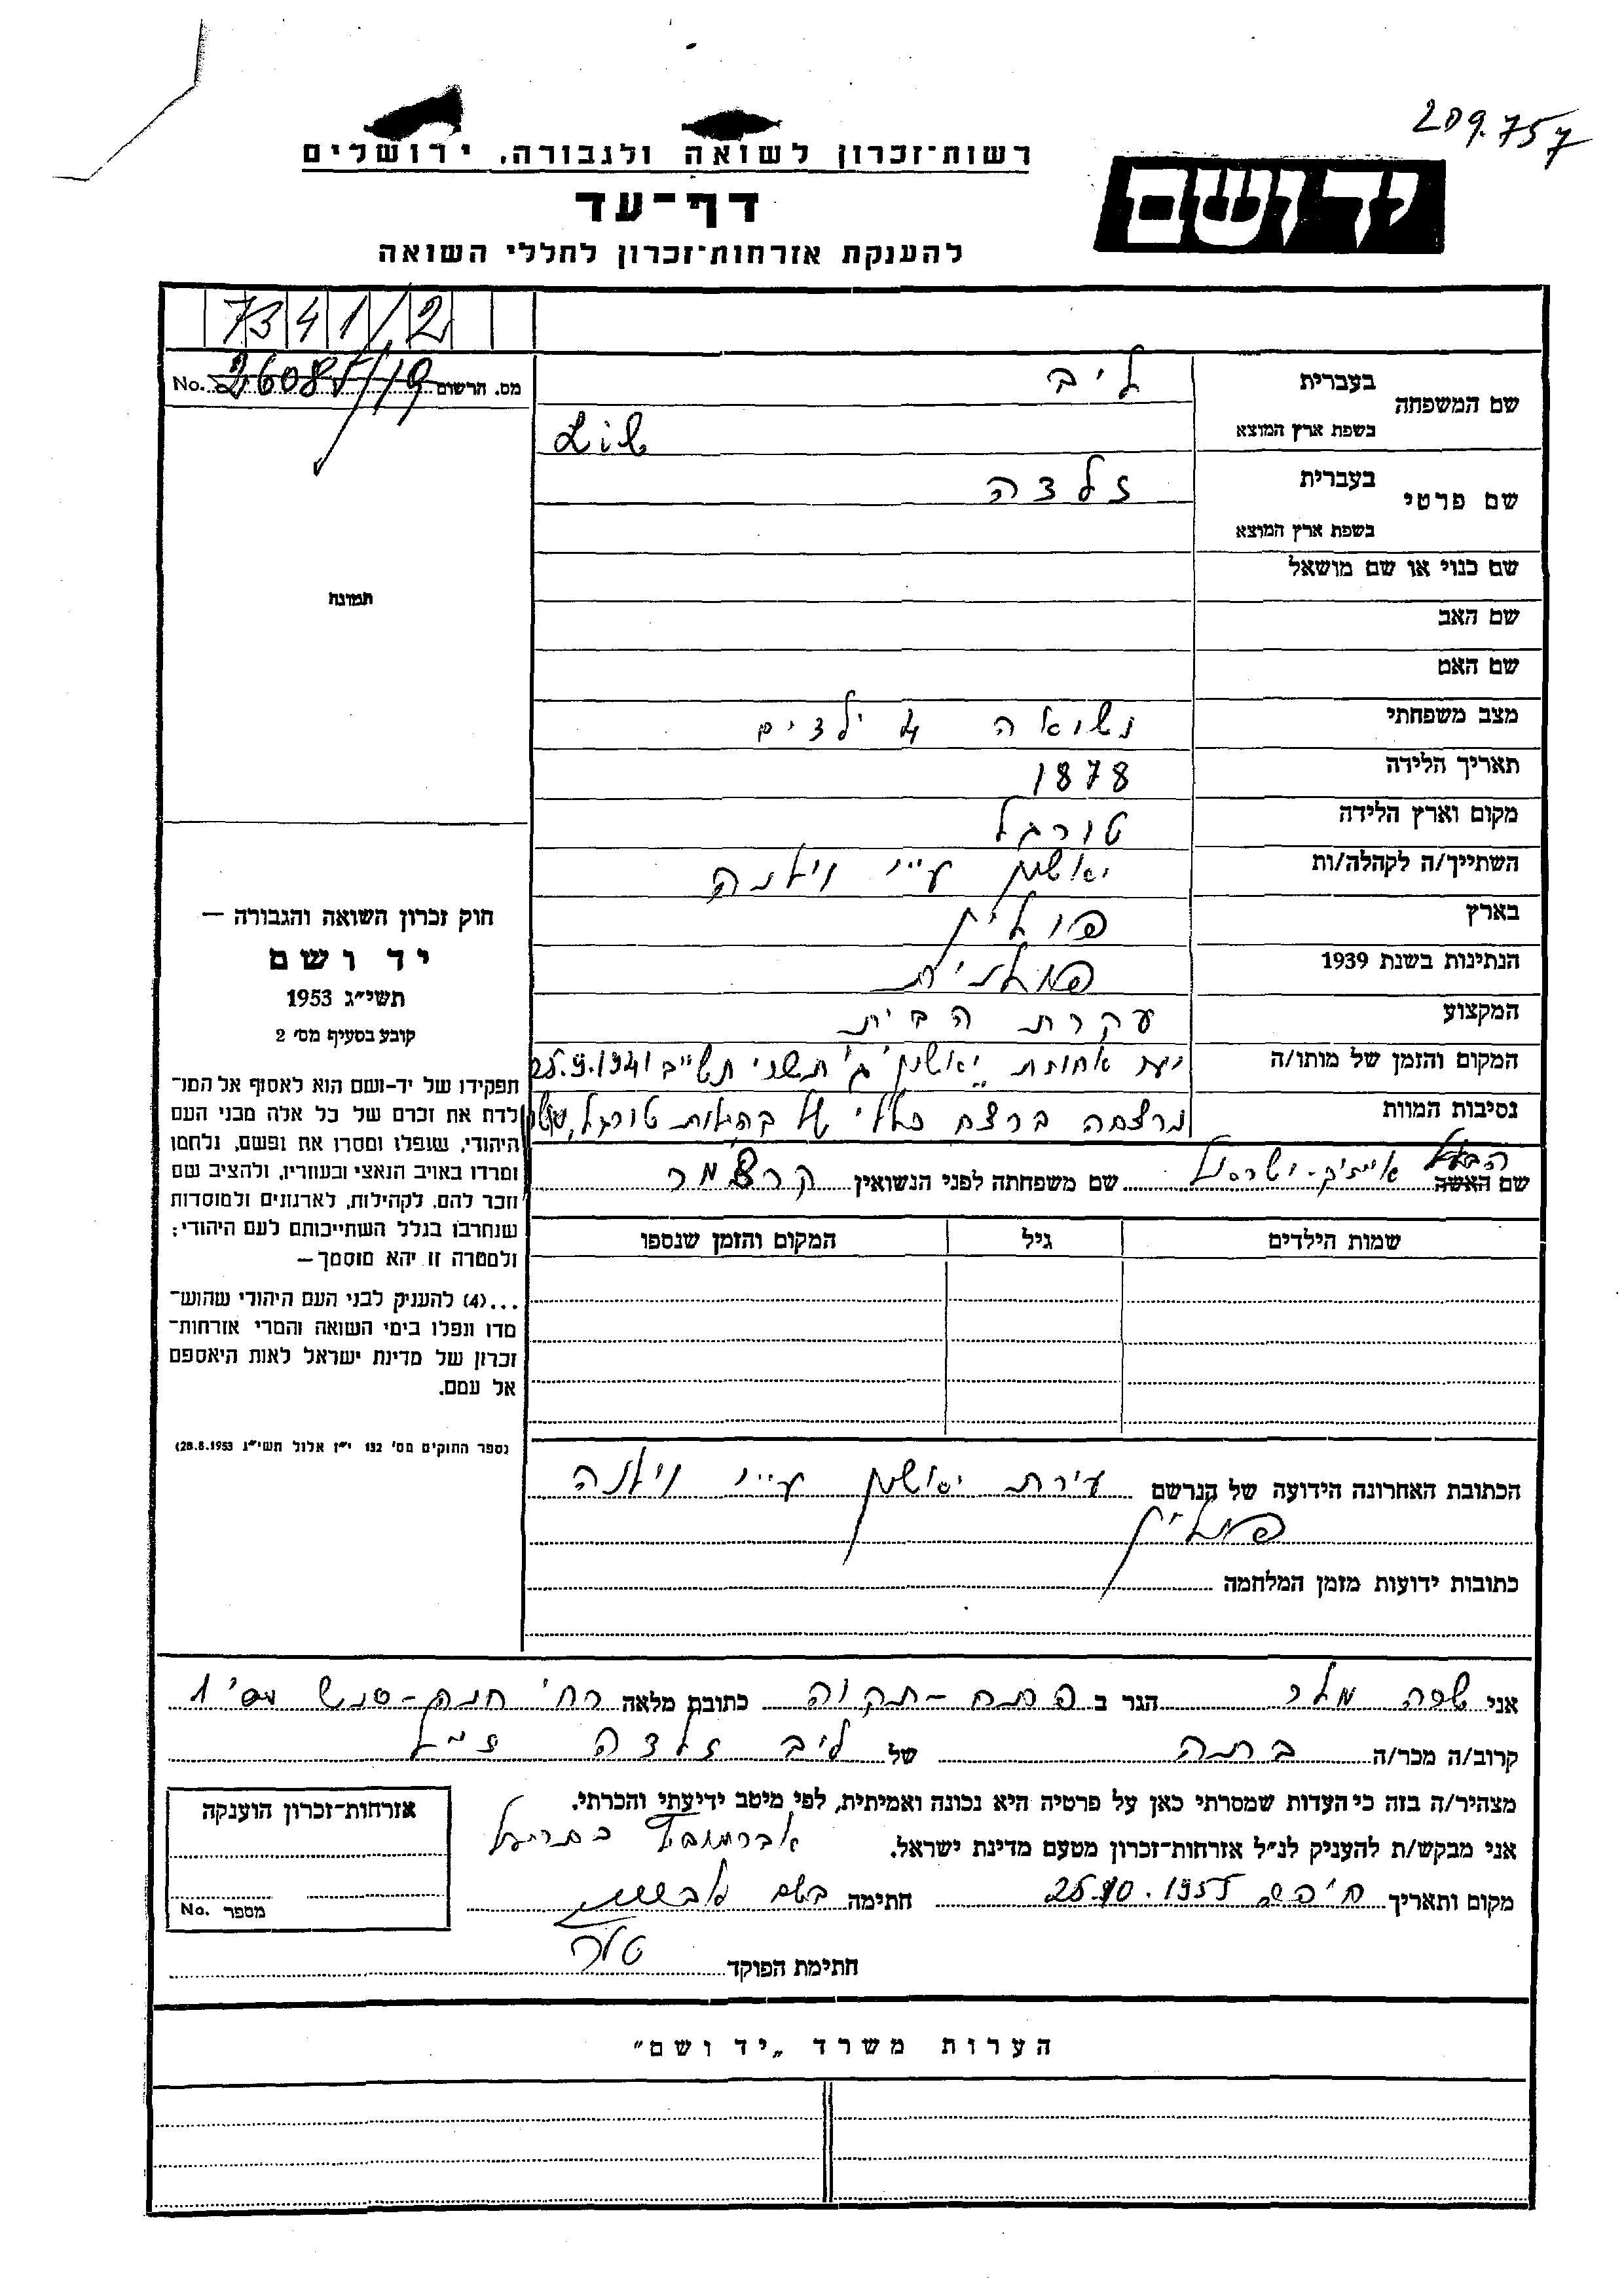 209.757
רשות־זכרון לשואה ולגבורה, ירושלים
יד ושם
דף־עד
להענקת אזרחות־זכרון לחללי השואה
7341/2
מס. הרשום 26085/19 No.
שם המשפחה בעברית ליב
בשפת ארץ המוצא
שם פרטי בעברית זלדה
בשפת ארץ המוצא
תמונה
שם כנוי או שם מושאל
שם האב
שם האם
מצב משפחתי נשואה 4 ילדים
תאריך הלידה 1878
מקום וארץ הלידה טורגל
השתייך/ה לקהלה/ות יאשון ע״י וילנה
בארץ פולין
הנתינות בשנת 1939 פולנית
המקצוע עקרת הבית
המקום והזמן של מותו/ה יער יאשון ג' תשרי תש״ב 25.9.1941
נסיבות המוות נרצחה ברצח כללי של טורגל,
הבעל
שם האשה אייזיק-ישראל שם משפחתה לפני הנשואין
שמות הילדים גיל המקום והזמן שנספו
הכתובת האחרונה הידועה של הנרשם עירת יאשון ע״י וילנה
פולין
כתובות ידועות מזמן המלחמה
חוק זכרון השואה והגבורה —
יד ושם
תשי״ג 1953
קובע בסעיף מס׳ 2
תפקידו של יד-ושם הוא לאסוף אל המו־
לדת את זכרם של כל אלה מבני העם
היהודי, שנפלו ומסרו את נפשם, נלחמו
ומרדו באויב הנאצי ובעוזריו, ולהציב שם
וזכר להם, לקהילות, לארגונים ולמוסדות
שנחרבו בגלל השתייכותם לעם היהודי;
ולמטרה זו יהא מוסמך —
...(4) להעניק לבני העם היהודי שהוש־
מדו ונפלו בימי השואה והמרי אזרחות־
זכרון של מדינת ישראל לאות היאספם
אל עמם.
(ספר החוקים מס׳ 132 י״ז אלול תשי״ג 28.8.1953)
אני שרה מלר הגר ב פתח-תקוה כתובת מלאה רח' חנה-סנש מס' 1
קרוב/ה מכר/ה בתה של ליב זלדה ז״ל
מצהיר/ה בזה כי העדות שמסרתי כאן על פרטיה היא נכונה ואמיתית, לפי מיטב ידיעתי והכרתי.
אני מבקש/ת להעניק לנ״ל אזרחות־זכרון מטעם מדינת ישראל.
מקום ותאריך חיפה 25.10.1955 חתימה
חתימת הפוקד
אזרחות־זכרון הוענקה
מספר No.
הערות משרד „יד ושם״